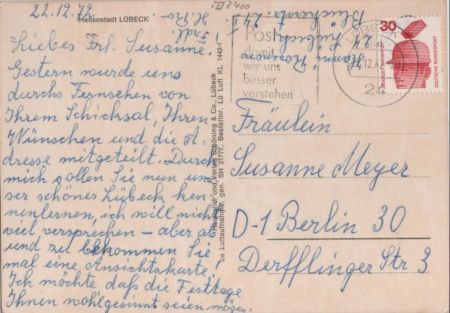 22.12.72
Hansestadt LÜBECK
Liebes Frl. Susanne!
Gestern wurde uns
durchs Fernsehen von
Ihrem Schicksal, Ihren
Wünschen und die A-
dresse mitgeteilt. Durch
mich sollen Sie nun un-
ser schönes Lübeck ken-
nenlernen, ich will nicht
viel versprechen – aber ab
und zu bekommen Sie
mal eine Ansichtskarte.
Ich möchte daß die Festtage
Ihnen wohlgesinnt seien mögen.
Post
damit
wir uns
besser
verstehen
24
30
DEUTSCHE BUNDESPOST
Fräulein
Susanne Meyer
D-1 Berlin 30
Derfflinger Str 3
Schöning & Co., Lübeck
Luftaufnahme, gen. SH 317/7, Bestellnr. Lü Luft KL 1442